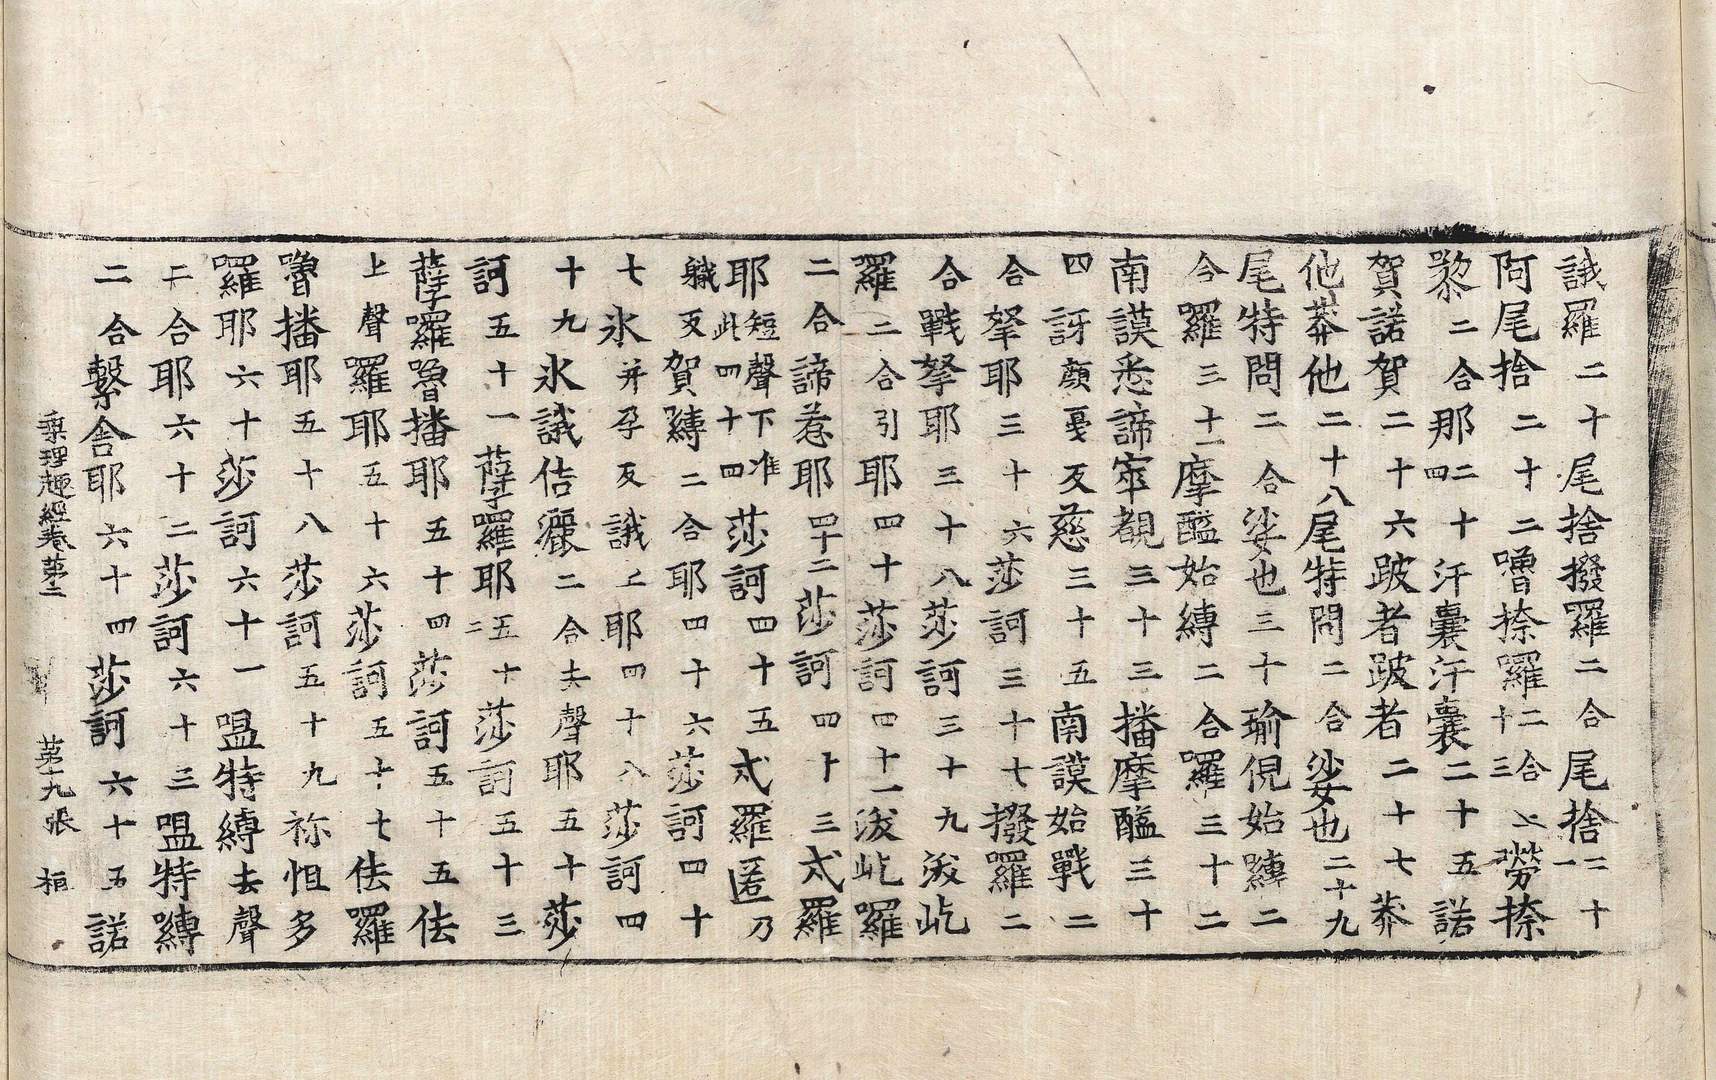 誐羅二十尾捨撥羅二合尾捨二十一
阿尾捨二十二嚕捺羅二合二十三上勞捺
黎二合那二十四汗囊汗囊二十五諾
賀諾賀二十六跛者跛者二十七莽
他莽他二十八尾特問二合娑也二十九
尾特問二合娑也三十瑜倪始嚩二
合羅三十一摩醯始嚩二合羅三十二
南謨悉諦寧覩三十三播摩醯三十
四訝顏戞反慈三十五南謨始戰二
合拏耶三十六莎訶三十七撥羅二
合戰拏耶三十八莎訶三十九泼屹
羅二合引耶四十莎訶四十一泼屹羅
二合諦惹耶四十二莎訶四十三忒羅
耶短聲下准此四十四莎訶四十五忒羅匿乃
軄反賀嚩二合耶四十六莎訶四十
七氷并孕反誐上耶四十八莎訶四
十九氷誐佶灑二合去聲耶五十莎
訶五十一孽囉耶五十二莎訶五十三
孽囉嚕播耶五十四莎訶五十五佉
上聲羅耶五十六莎訶五十七佉羅
嚕播耶五十八莎訶五十九祢怛多
羅耶六十莎訶六十一嗢特嚩去聲
二合耶六十二莎訶六十三嗢特嚩
二合繫舍耶六十四莎訶六十五諾
梨理趣經卷第二 第十九張 桓